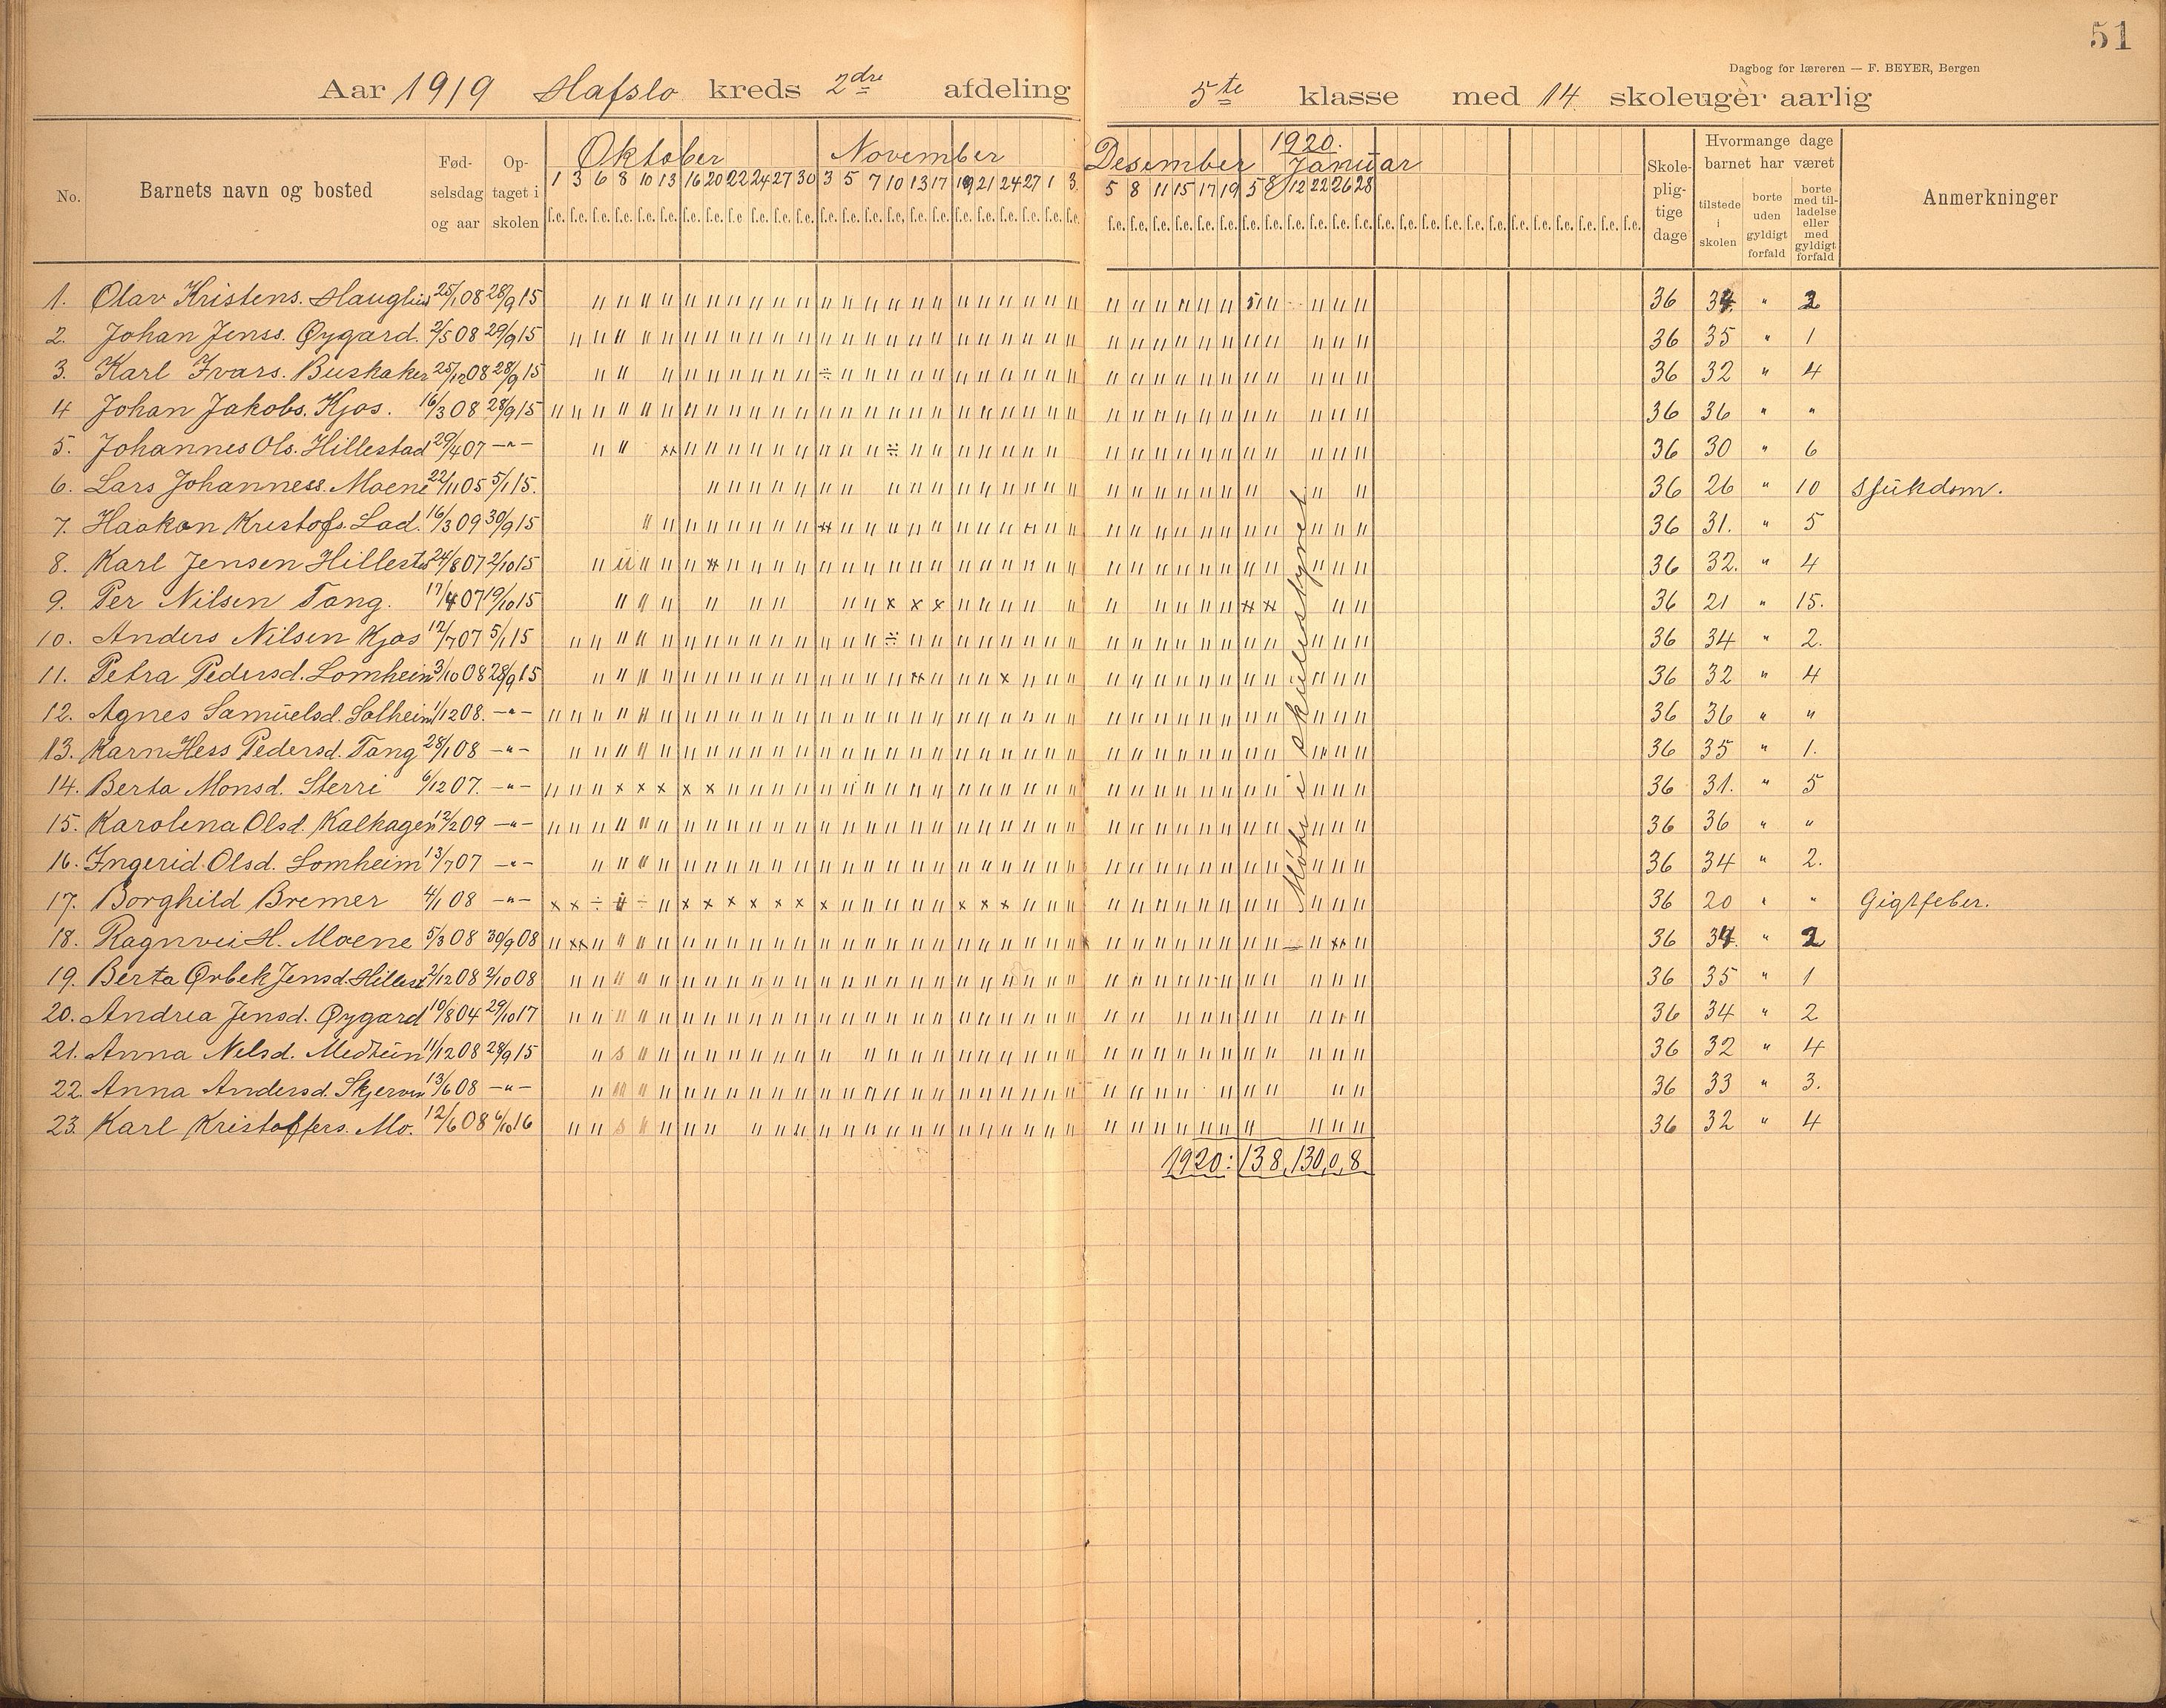 51
Dagbog for læreren — F. BEYER, Bergen
Aar 1919 Hafslo kreds 2dre afdeling 5te klasse med 14 skoleuger aarlig
No. Barnets navn og bosted Fød-selsdag og aar Op-taget i skolen Oktober November Desember 1920. Januar Skole-plig-tige dage Hvormange dage barnet har været Anmerkninger
tilstede i skolen borte uden gyldigt forfald borte med til-ladelse eller med gyldigt forfald
1 3 6 8 10 13 16 20 22 24 27 30 3 5 7 10 13 17 19 21 24 27 1 3 5 8 11 15 17 19 5 8 12 22 26 28
1. Olav Kristens. Hauglum 25/1 08 28/9 15 36 34 " 2
2. Johan Jenss. Øygard. 2/5 08 29/9 15 36 35 " 1
3. Karl Ivars. Buskaker 25/12 08 28/9 15 36 32 " 4
4 Johan Jakobs. Kjos. 16/3 08 28/9 15 36 36 " "
5. Johannes Ols. Hillestad 29/4 07 —"— 36 30 " 6
6. Lars Johanness. Moene 22/11 05 5/1 15. 36 26 " 10 Sjukdom.
7. Haakon Kristofs. Lad. 16/3 09 30/9 15 36 31. " 5
8. Karl Jensen Hillest 24/8 07 2/10 15 36 32. " 4
9. Per Nilsen Tang. 17/4 07 19/10 15 36 21 " 15.
10. Anders Nilsen Kjos 12/7 07 5/1 15 36 34 " 2.
11. Petra Pedersd. Lomheim 3/10 08 28/9 15 36 32 " 4
12. Agnes Samuelsd. Solheim 1/12 08. —"— 36 36 " "
13. Karn Hess Pedersd. Tang 28/1 08 —"— 36 35 " 1.
14. Berta Monsd. Sterri 6/12 07. —"— 36 31. " 5
15. Karolina Olsd. Kalhagen 12/2 09 —"— 36 36 " "
16. Ingerid Olsd. Lomheim 13/7 07 —"— 36 34 " 2.
17. Borghild Bremer 4/1 08 —"— 36 20 " " Gigtfeber.
18. Ragnvei H. Moene 5/3 08 30/9 08 36 34. " 2
19. Berta Ørbek Jensd. Hillest 2/12 08 2/10 08 36 35 " 1
20. Andrea Jensd. Øygard 10/8 04 29/10 17 36 34 " 2
21. Anna Nelsd. Medheim 11/12 08 28/9 15 36 32 " 4
22. Anna Andersd. Skjervin 13/6 08 —"— 36 33 " 3.
23. Karl Kristoffers. Mo. 12/6 08 6/10 16 36 32 " 4
Møte i skulestyret
1920: 138, 130, 0, 8